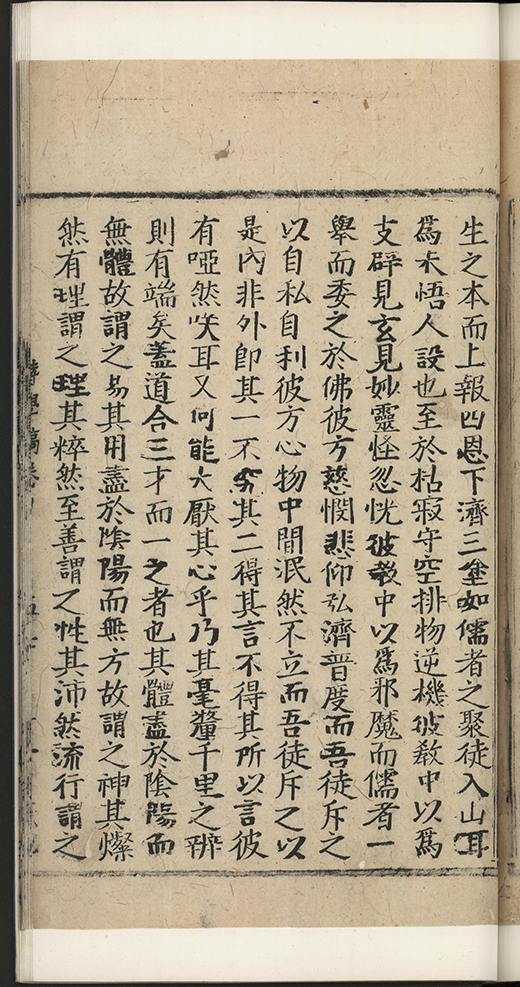 生之本而上報四恩下濟三塗如儒者之聚徒入山耳
爲未悟人設也至於枯寂守空排物逆機彼教中以爲
支辟見玄見妙靈怪忽恍彼教中以爲邪魔而儒者一
舉而委之於佛彼方慈憫悲仰弘濟普度而吾徒斥之
以自私自利彼方心物中間泯然不立而吾徒斥之以
是內非外卽其一不究其二得其言不得其所以言彼
有啞然咲耳又何能大厭其心乎乃其毫釐千里之辨
則有端矣蓋道合三才而一之者也其體盡於陰陽而
無體故謂之易其用盡於陰陽而無方故謂之神其燦
然有理謂之理其粹然至善謂之性其沛然流行謂之